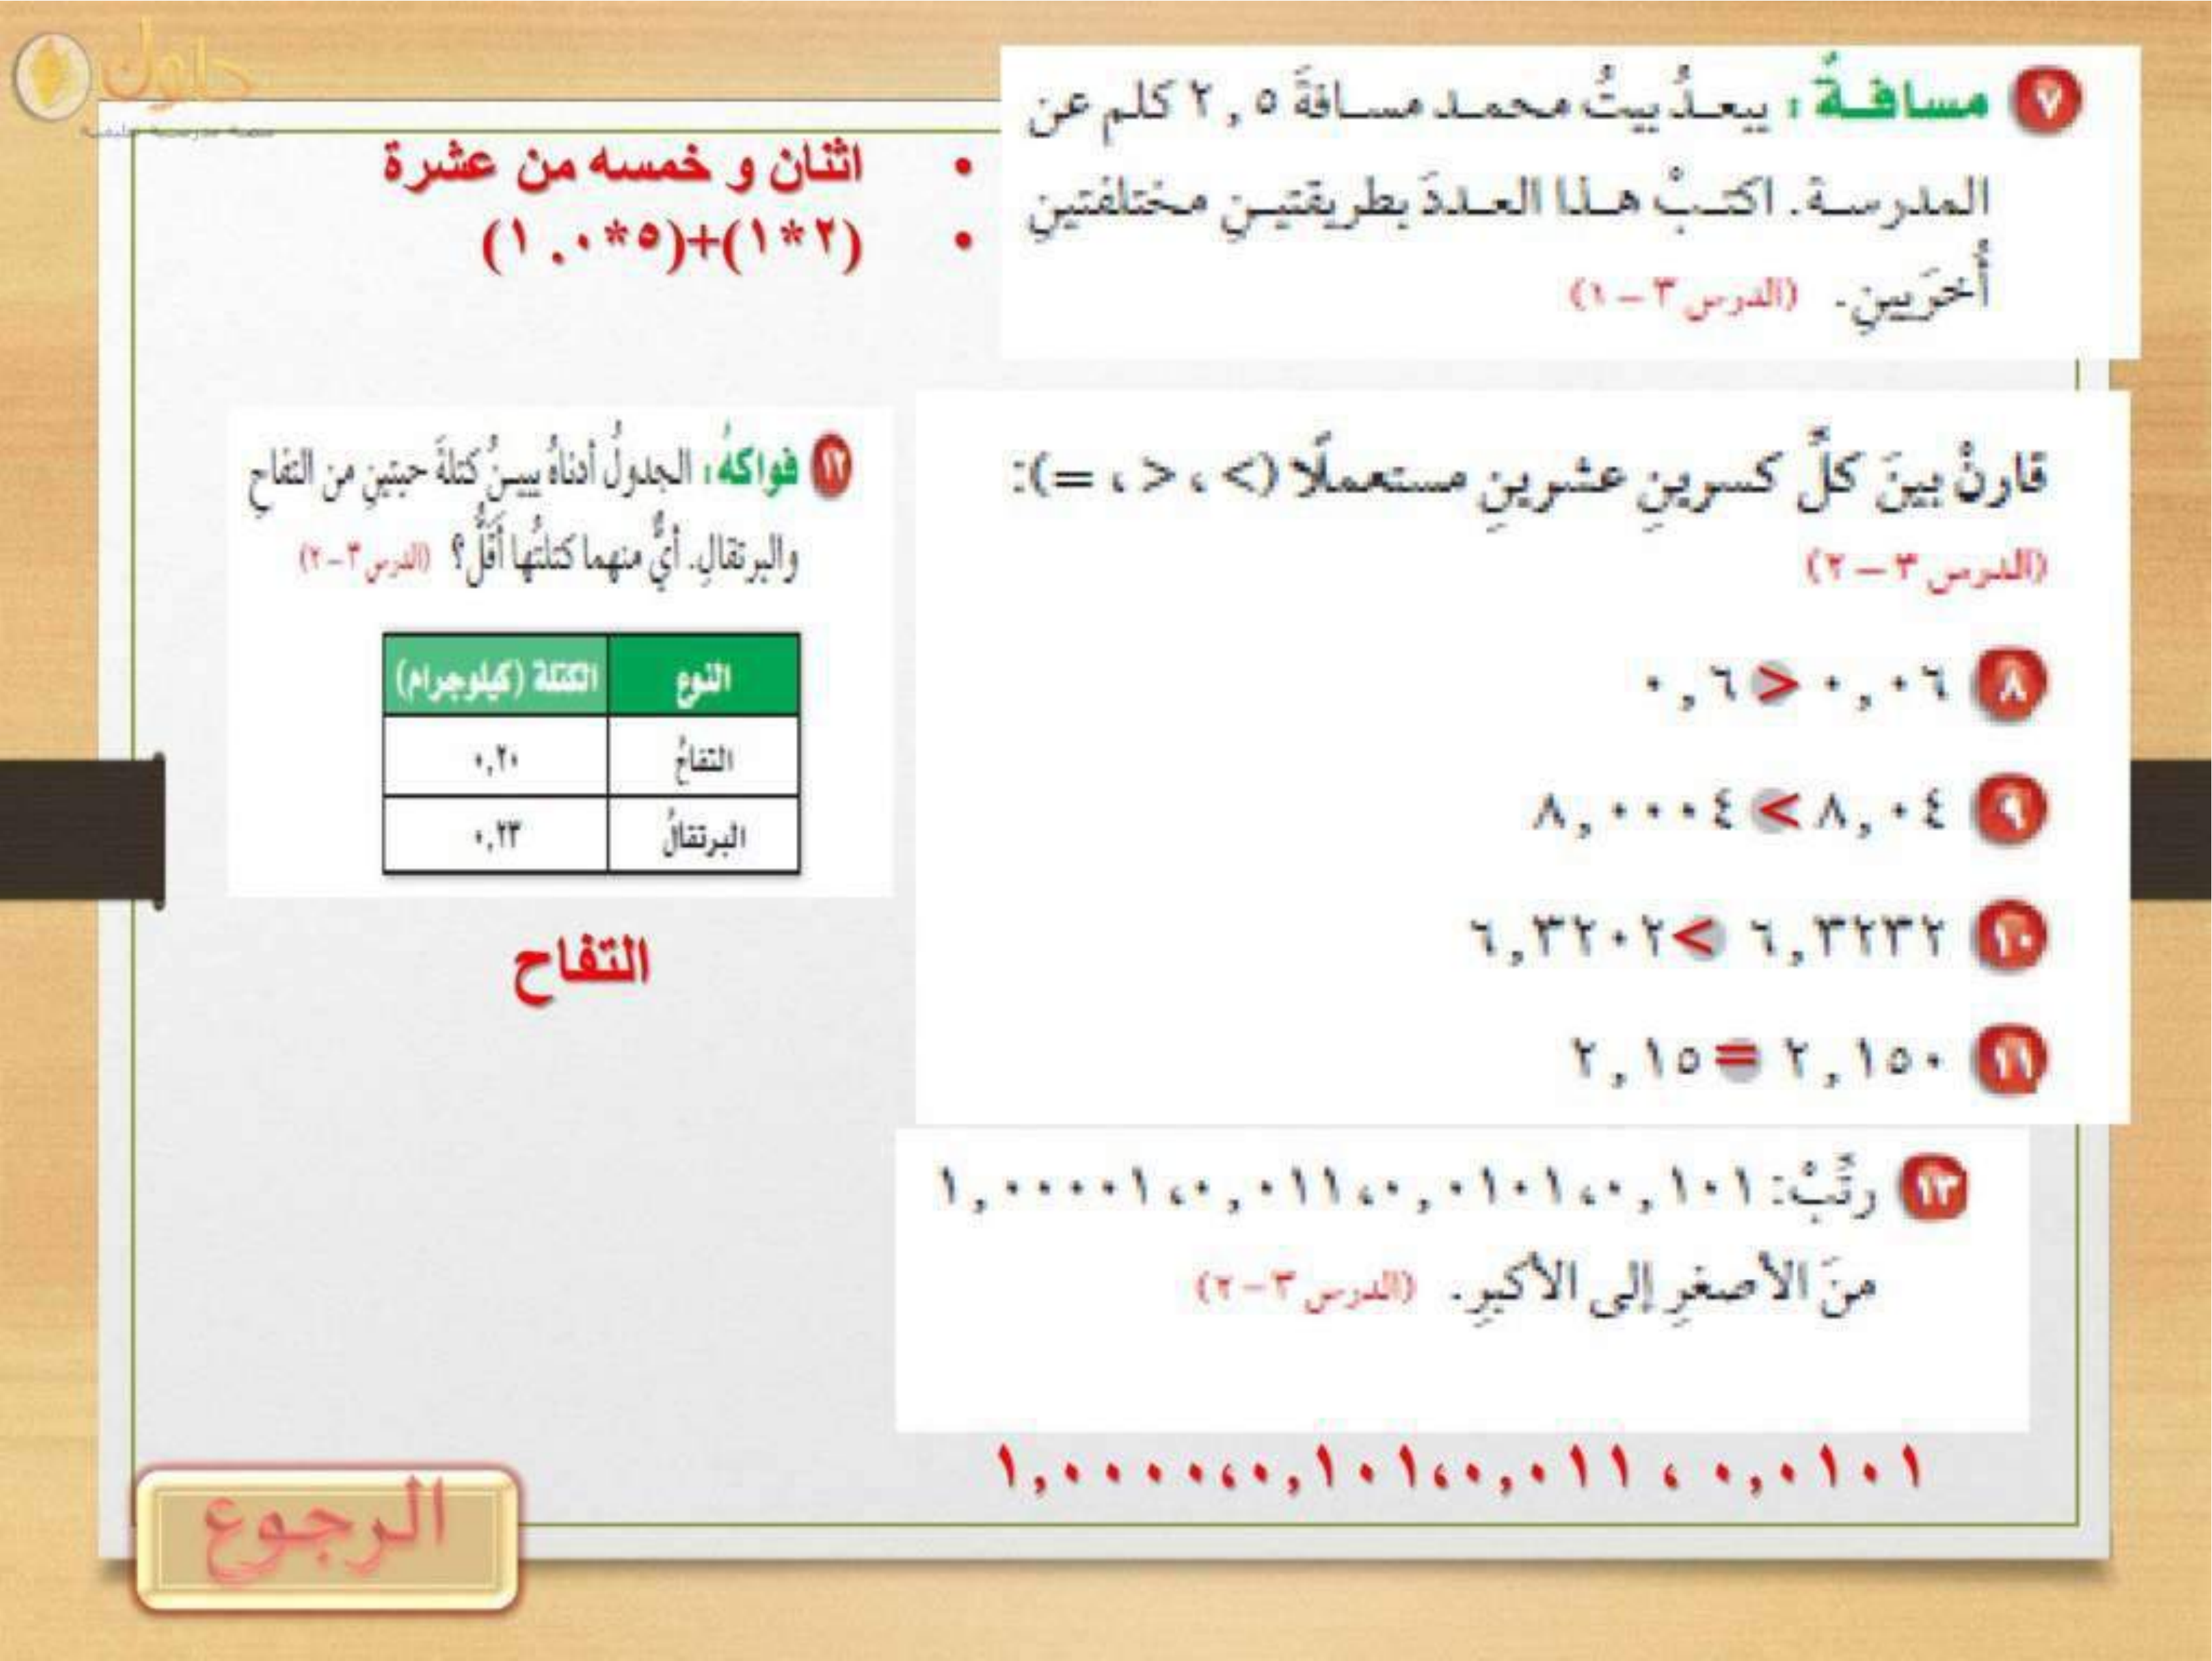 حلول
٧ مسافةٌ: يبعدُ بيتُ محمد مسافةَ ٢,٥ كلم عن
المدرسة. اكتبْ هذا العددَ بطريقتينِ مختلفتينِ
أُخرَيينِ. (الدرس ٣ – ١)
• اثنان و خمسه من عشرة
• (٢*١)+(٥*٠,١)
قارنْ بينَ كلِّ كسرينِ عشرينِ مستعملًا (> ، < ، =):
(الدرس ٣ – ٢)
٨ ٠,٠٦ < ٠,٦
٩ ٨,٠٤ > ٨,٠٠٠٤
١٠ ٦,٣٢٣٢ > ٦,٣٢٠٢
١١ ٢,١٥٠ = ٢,١٥
١٢ فواكهُ: الجدولُ أدناهُ يبينُ كتلةَ حبتينِ من التفاحِ
والبرتقالِ. أيٌّ منهما كتلتُها أقلُّ؟ (الدرس ٣ – ٢)
النوع الكتلة (كيلوجرام)
التفاحُ ٠,٢٠
البرتقالُ ٠,٢٣
التفاح
١٣ رتِّبْ: ٠,١٠١، ٠,٠١٠١، ٠,٠١١، ١,٠٠٠٠١
منَ الأصغرِ إلى الأكبرِ. (الدرس ٣ – ٢)
٠,٠١٠١ ، ٠,٠١١، ٠,١٠١، ١,٠٠٠٠
الرجوع